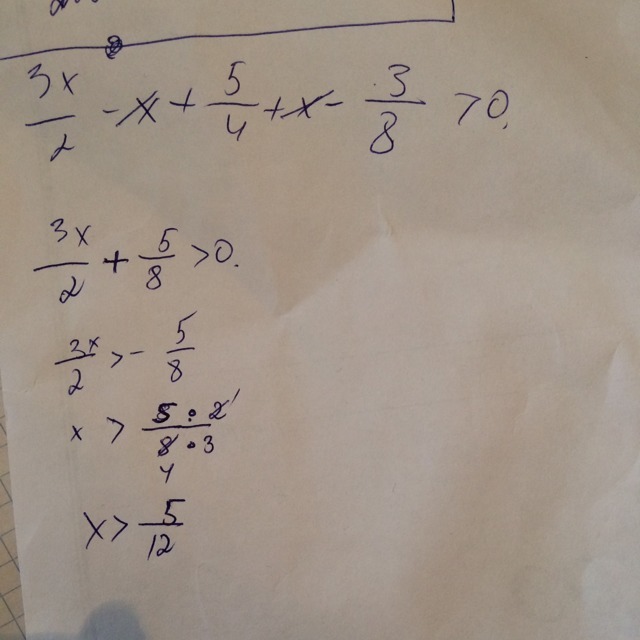 3x/2 - x + 5/4 + x - 3/8 > 0.
3x/2 + 5/8 > 0.
3x/2 > - 5/8
x > 5 · 2 1 / 8 · 3 4
x > 5/12